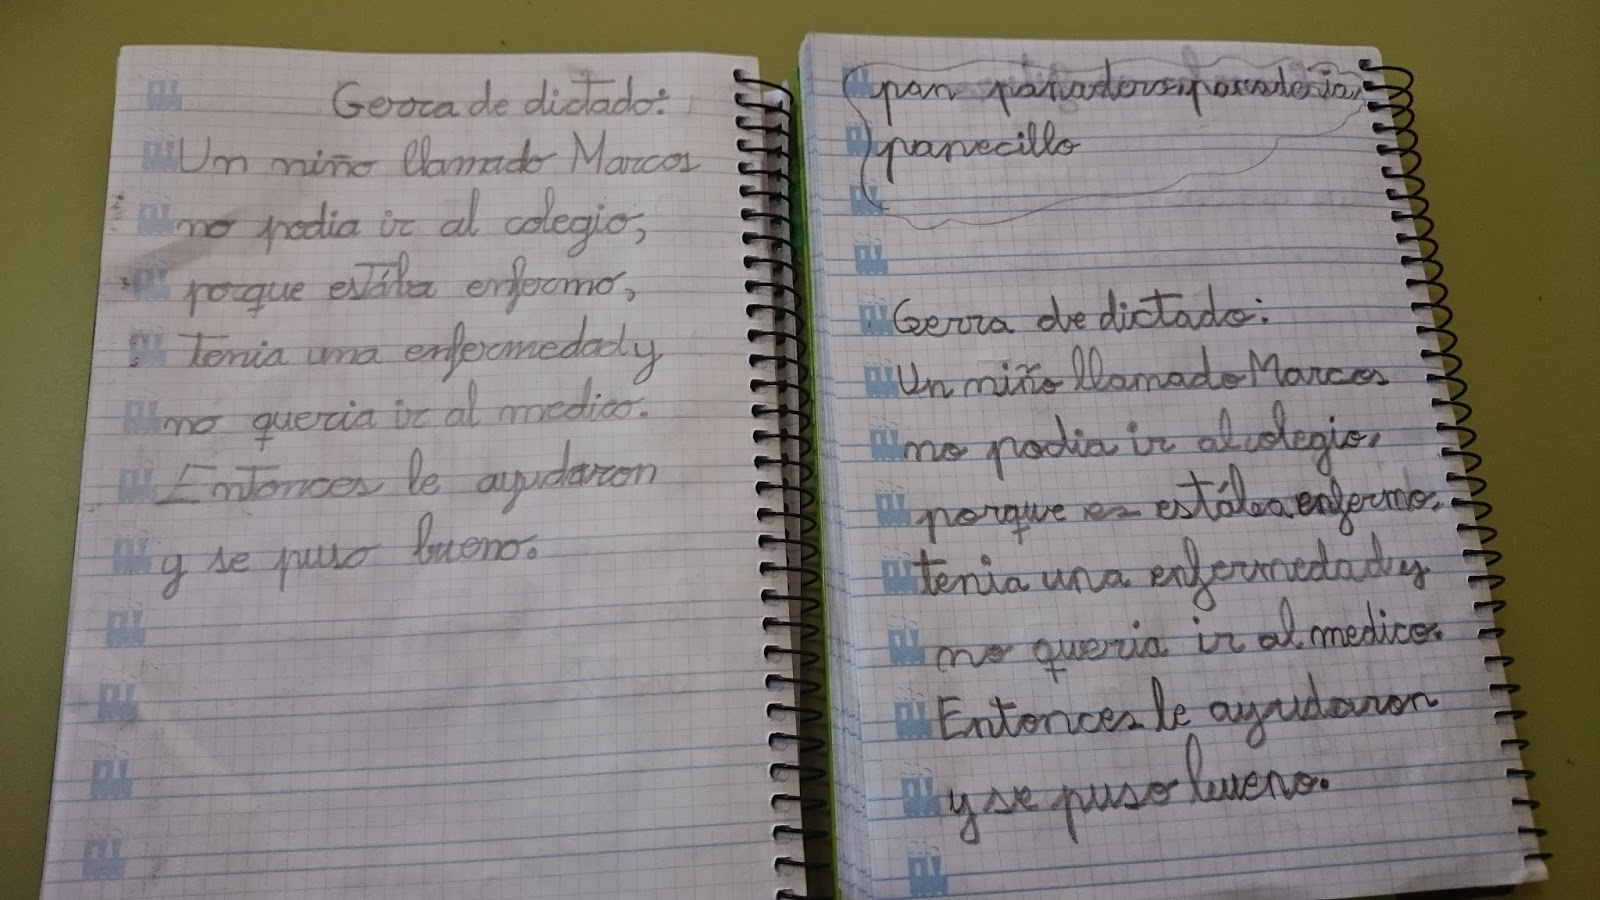 Gerra de dictado:
Un niño llamado Marcos
no podia ir al colegio,
porque estába enfermo,
tenia una enfermedad y
no queria ir al medico.
Entonces le ayudaron
y se puso bueno.
pan panadero panaderia,
panecillo
Gerra de dictado:
Un niño llamado Marcos
no podia ir al colegio,
porque es estába enfermo,
tenia una enfermedad y
no queria ir al medico.
Entonces le ayudaron
y se puso bueno.